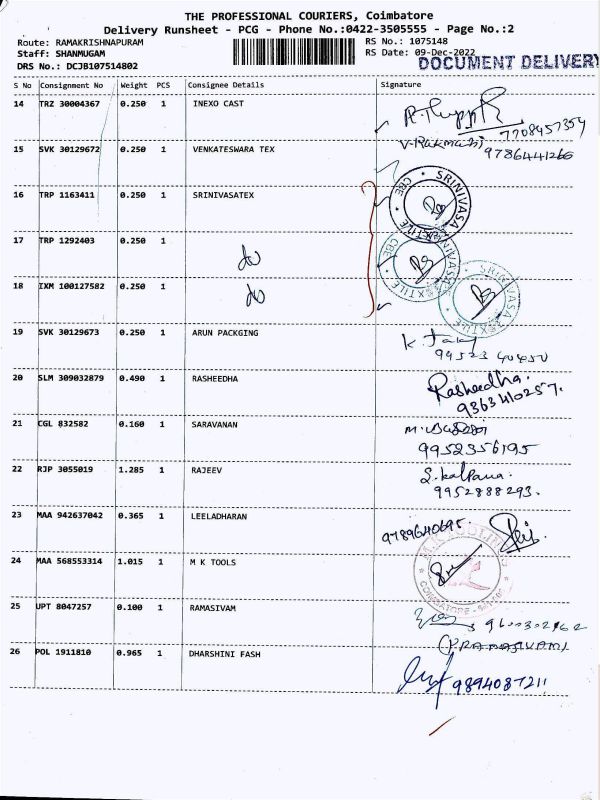 THE PROFESSIONAL COURIERS, Coimbatore
Delivery Runsheet - PCG - Phone No.:0422-3505555 - Page No.:2
Route: RAMAKRISHNAPURAM RS No.: 1075148
Staff: SHANMUGAM RS Date: 09-Dec-2022
DOCUMENT DELIVERY
DRS No.: DCJB107514802
S No Consignment No Weight PCS Consignee Details Signature
14 TRZ 30004367 0.250 1 INEXO CAST
7708457354
15 SVK 30129672 0.250 1 VENKATESWARA TEX
9786441266
16 TRP 1163411 0.250 1 SRINIVASATEX
SRINIVASA CBE
17 TRP 1292403 0.250 1 do
SRINIVASA TEXTILE CBE
18 IXM 100127582 0.250 1 do
SRINIVASA TEXTILE
19 SVK 30129673 0.250 1 ARUN PACKGING
99523 40450
20 SLM 309032879 0.490 1 RASHEEDHA
Rasheedha.
9363410257.
21 CGL 832582 0.160 1 SARAVANAN
9952356195
22 RJP 3055019 1.285 1 RAJEEV
S. kalpana.
9952888293.
23 MAA 942637042 0.365 1 LEELADHARAN
9789640695
24 MAA 568553314 1.015 1 M K TOOLS
COIMBATORE
25 UPT 8047257 0.100 1 RAMASIVAM
9600302962
26 POL 1911810 0.965 1 DHARSHINI FASH
9894087211